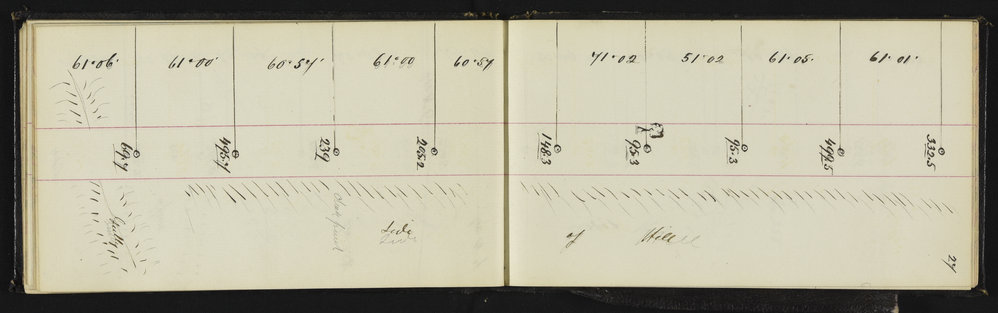 61°06' 61°00' 60°57' 61°00 60°57 71°02 51°02 61°05' 61°01'
495.7 239 205.2 148.3 95.3 95.3 499.5 332.5
Gully
Side of Hill
27